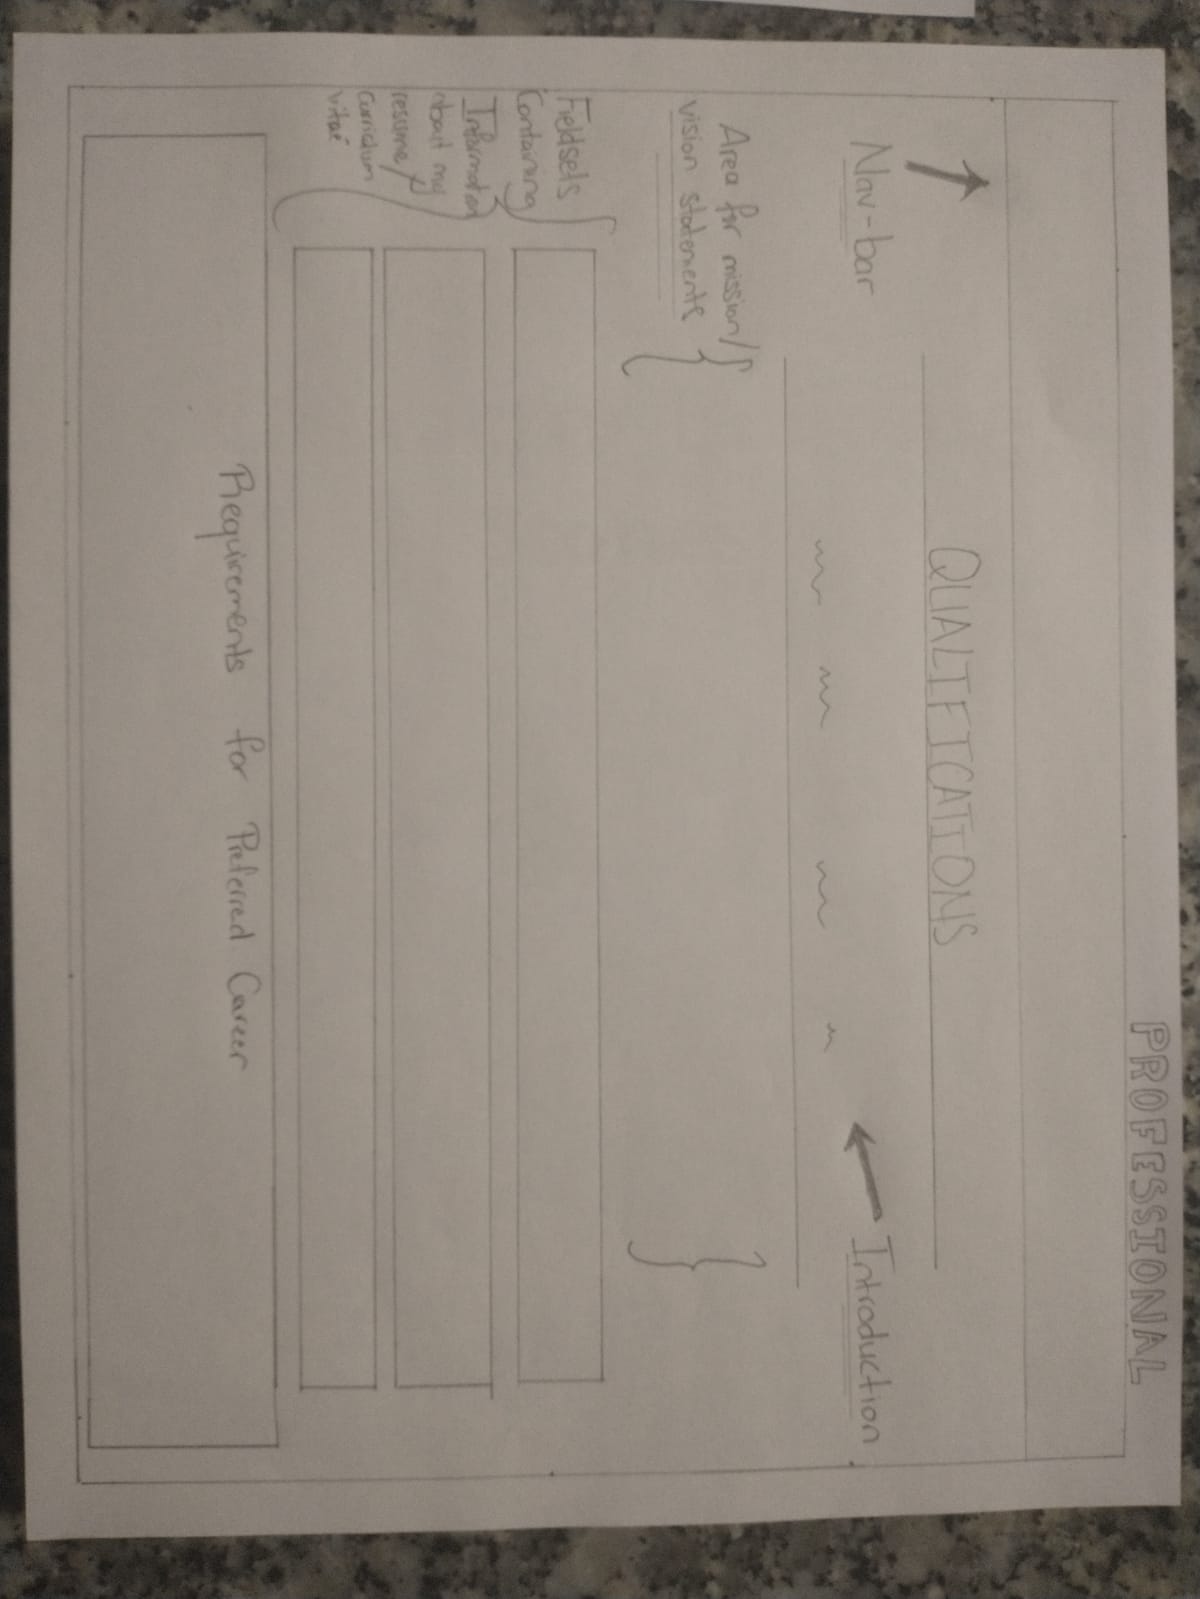 PROFESSIONAL
QUALIFICATIONS
Nav-bar
Introduction
Area for mission/
vision statements
Fieldsets
Containing
Information
about my
resume/
curriculum
vitae
Requirements for Preferred Career